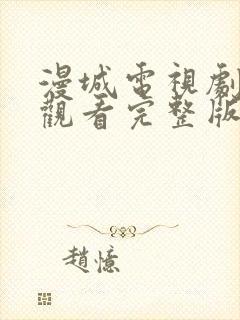 漫城電視劇
觀看完整版
趙憶